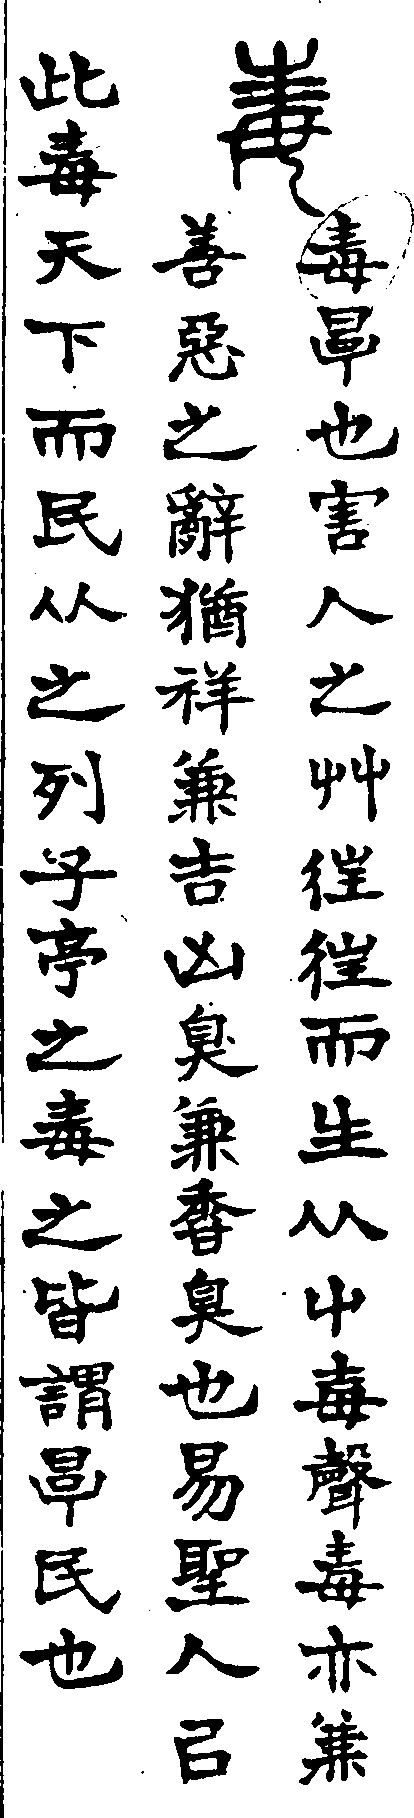 毒
毒㫗也害人之艸徃徃而生从屮毒聲毒亦兼
善惡之辭猶祥兼吉凶臭兼香臭也易聖人㠯
此毒天下而民从之列子亭之毒之皆謂㫗民也